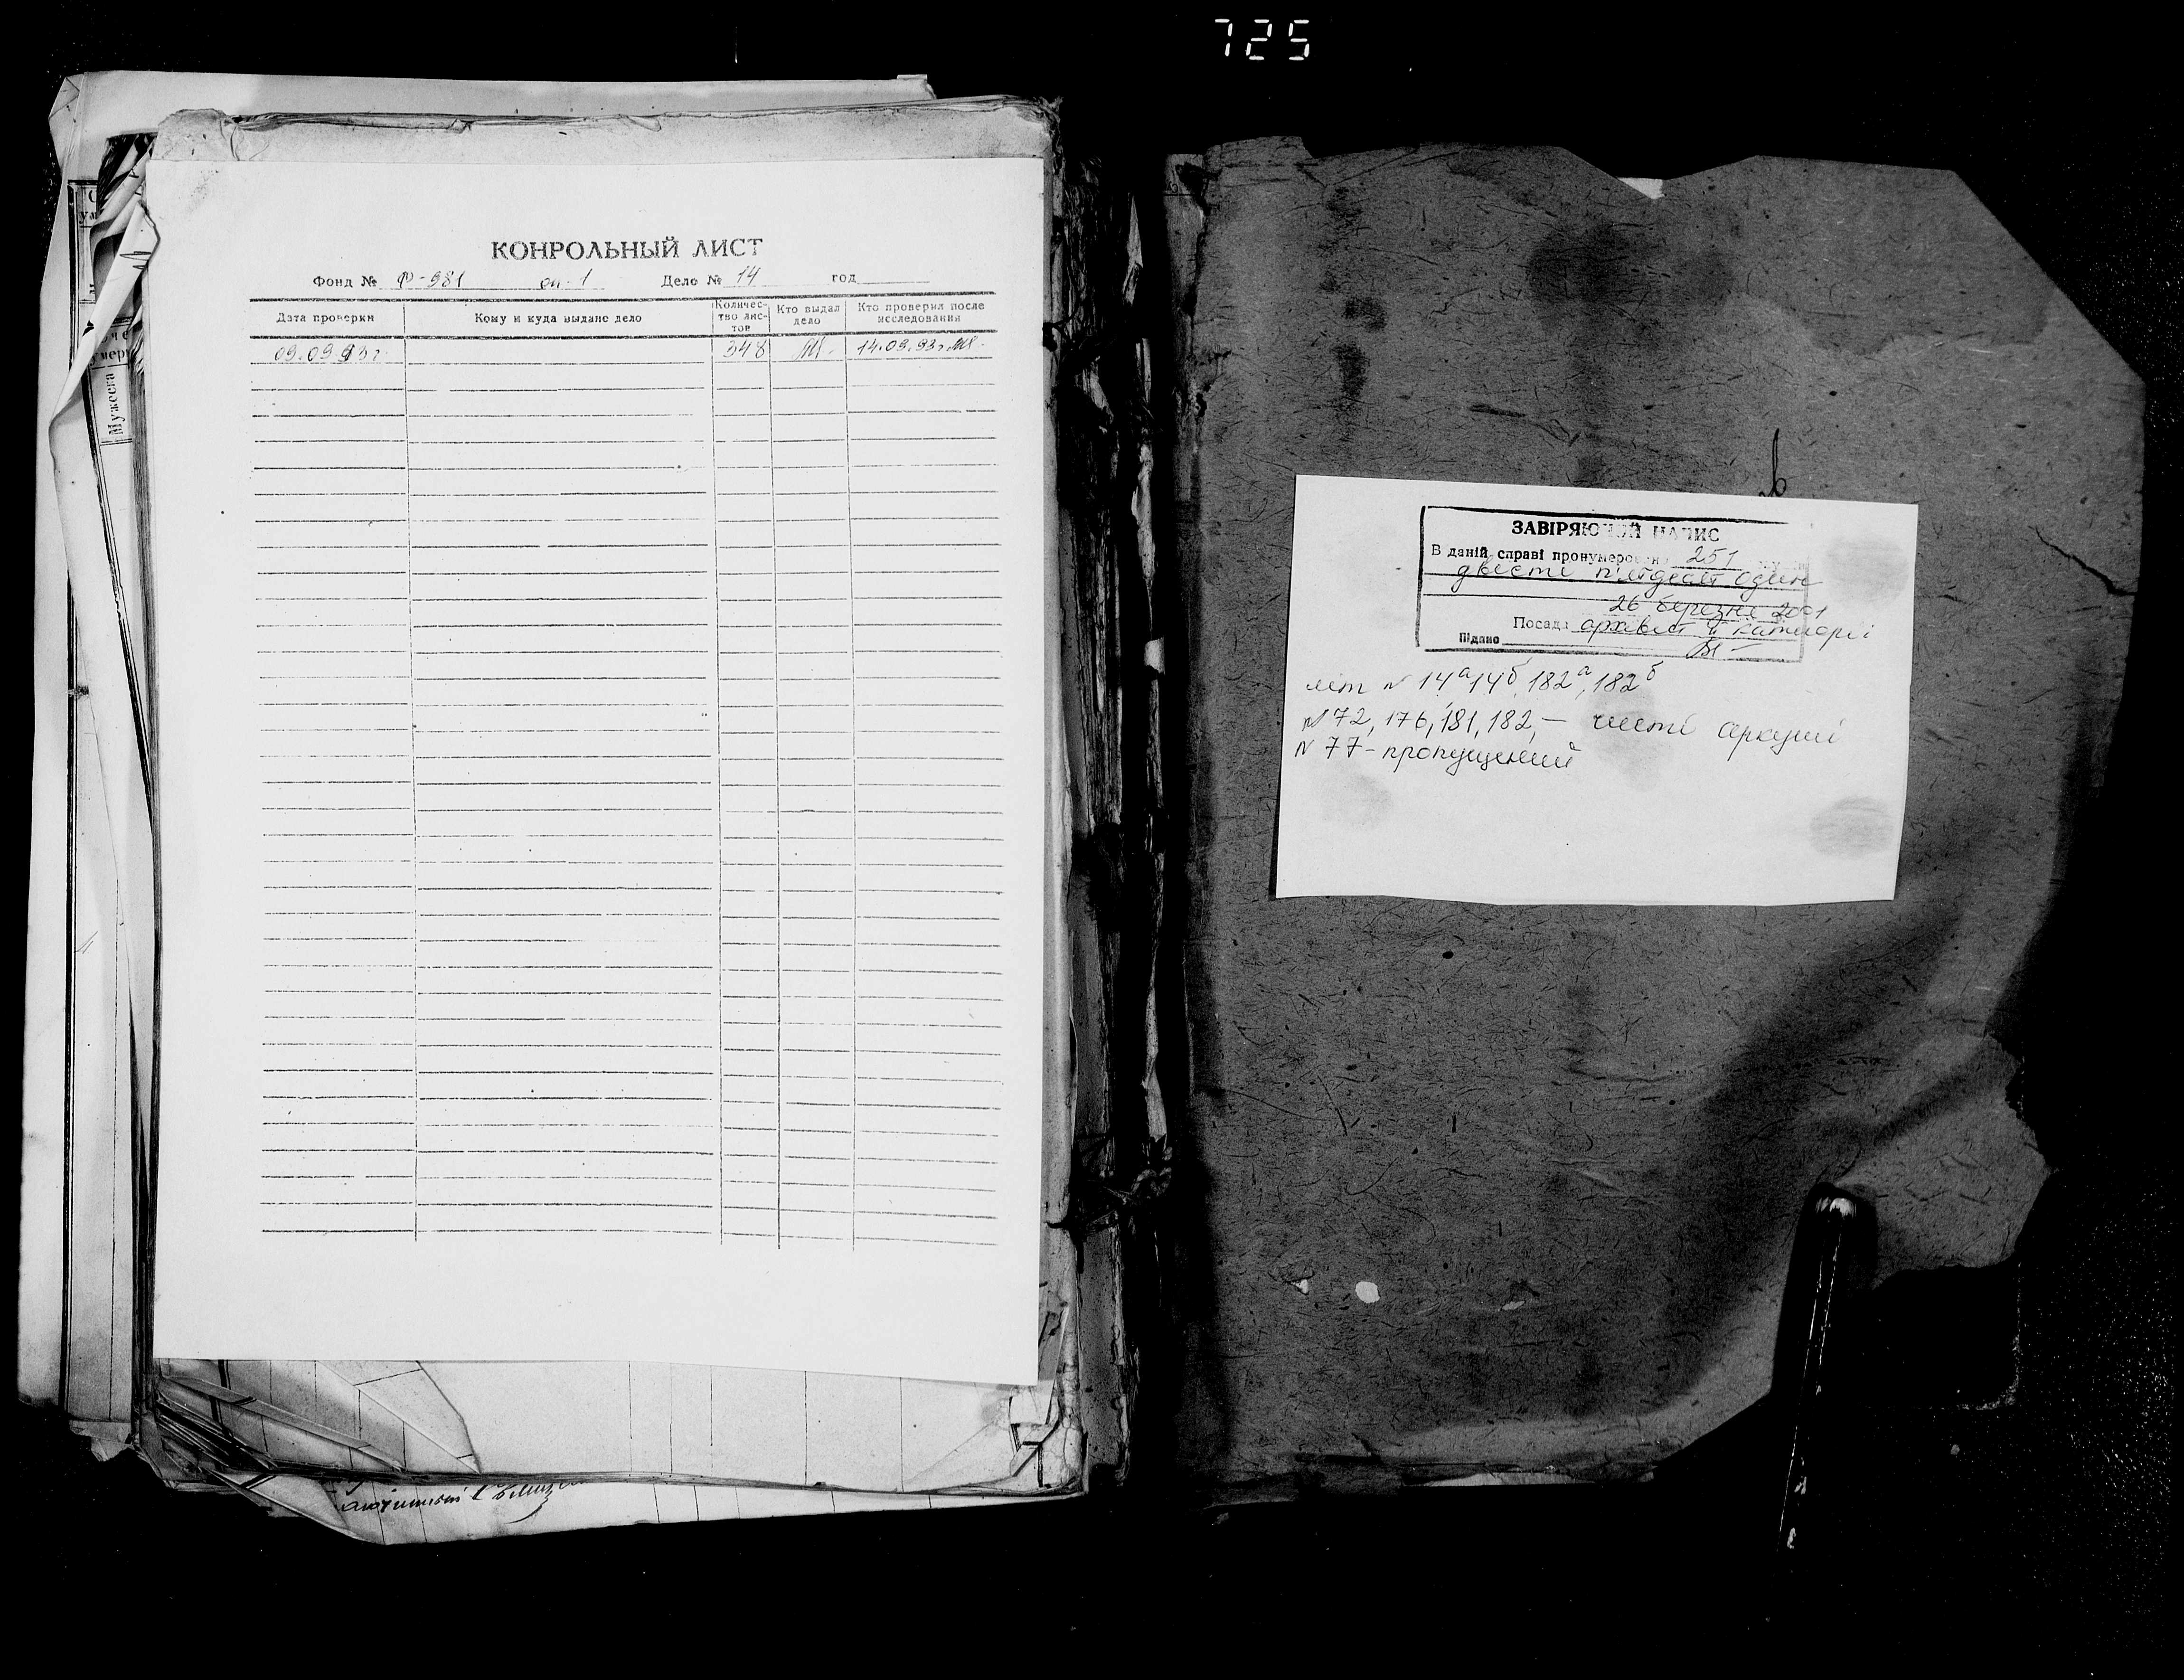 725
КОНРОЛЬНЫЙ ЛИСТ
Фонд № Ф-981 оп-1 Дело № 14 год
Дата проверки Кому и куда выдано дело Количес-тво лис-тов Кто выдал дело Кто проверил после исследования
09.09.93г. 348 14.09.93г.
Мужеска
ЗАВІРЯЮЧИЙ НАПИС
В даній справі пронумеровано 251
двесті п'ятдесят один
26 березня 2001
Посада архівіст ІІ категорії
Підпис
літ № 14а 14б, 182а, 182б
№ 72, 176, 181, 182, — чисті аркуші
№ 77 - пропущений